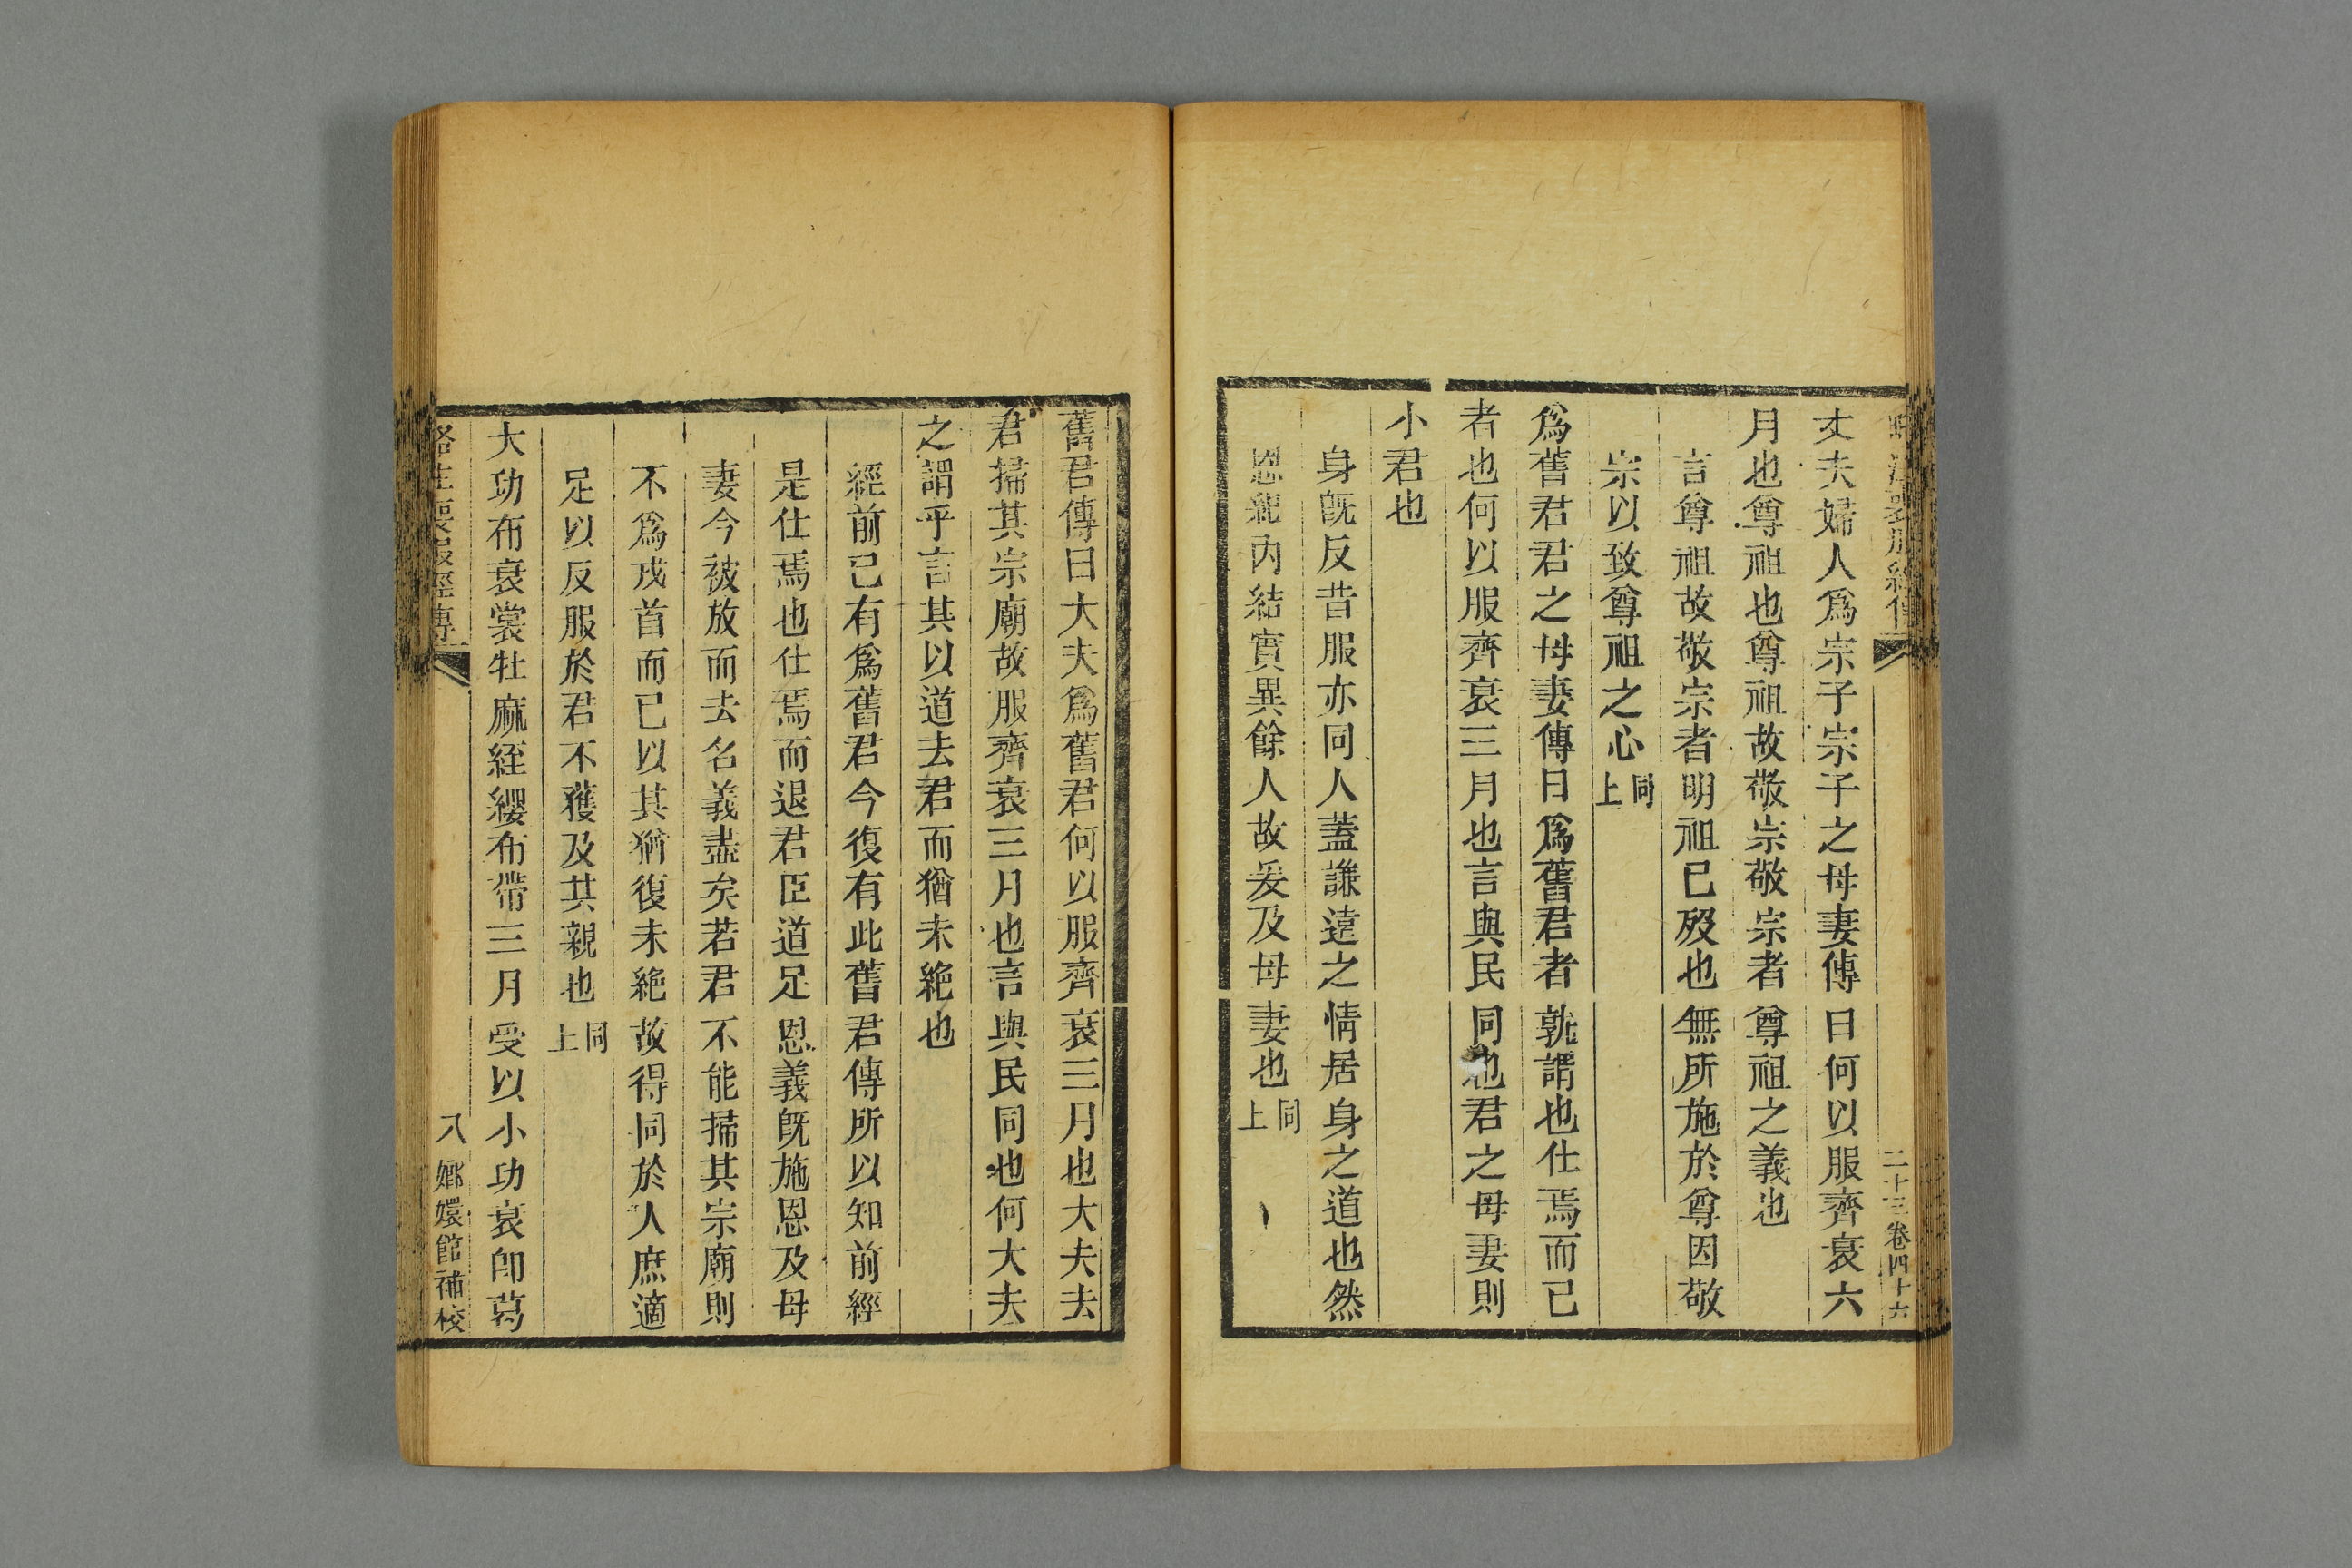 二十三卷四十六
丈夫婦人爲宗子宗子之母妻傳曰何以服齊衰六
月也尊祖也尊祖故敬宗敬宗者尊祖之義也
言尊祖故敬宗者明祖已歿也無所施於尊因敬
宗以致尊祖之心同上
爲舊君君之母妻傳曰爲舊君者孰謂也仕焉而已
者也何以服齊衰三月也言與民同也君之母妻則
小君也
身旣反昔服亦同人蓋謙遠之情居身之道也然
恩紀內結實異餘人故爰及母妻也同上
舊君傳曰大夫爲舊君何以服齊衰三月也大夫去
君掃其宗廟故服齊衰三月也言與民同也何大夫
之謂乎言其以道去君而猶未絶也
經前已有爲舊君今復有此舊君傳所以知前經
是仕焉也仕焉而退君臣道足恩義旣施恩及母
妻今被放而去名義盡矣若君不能掃其宗廟則
不爲戎首而已以其猶復未絶故得同於人庶適
足以反服於君不獲及其親也同上
大功布衰裳牡麻絰纓布帶三月受以小功衰卽葛
略注喪服經傳
八
嫏嬛館補校